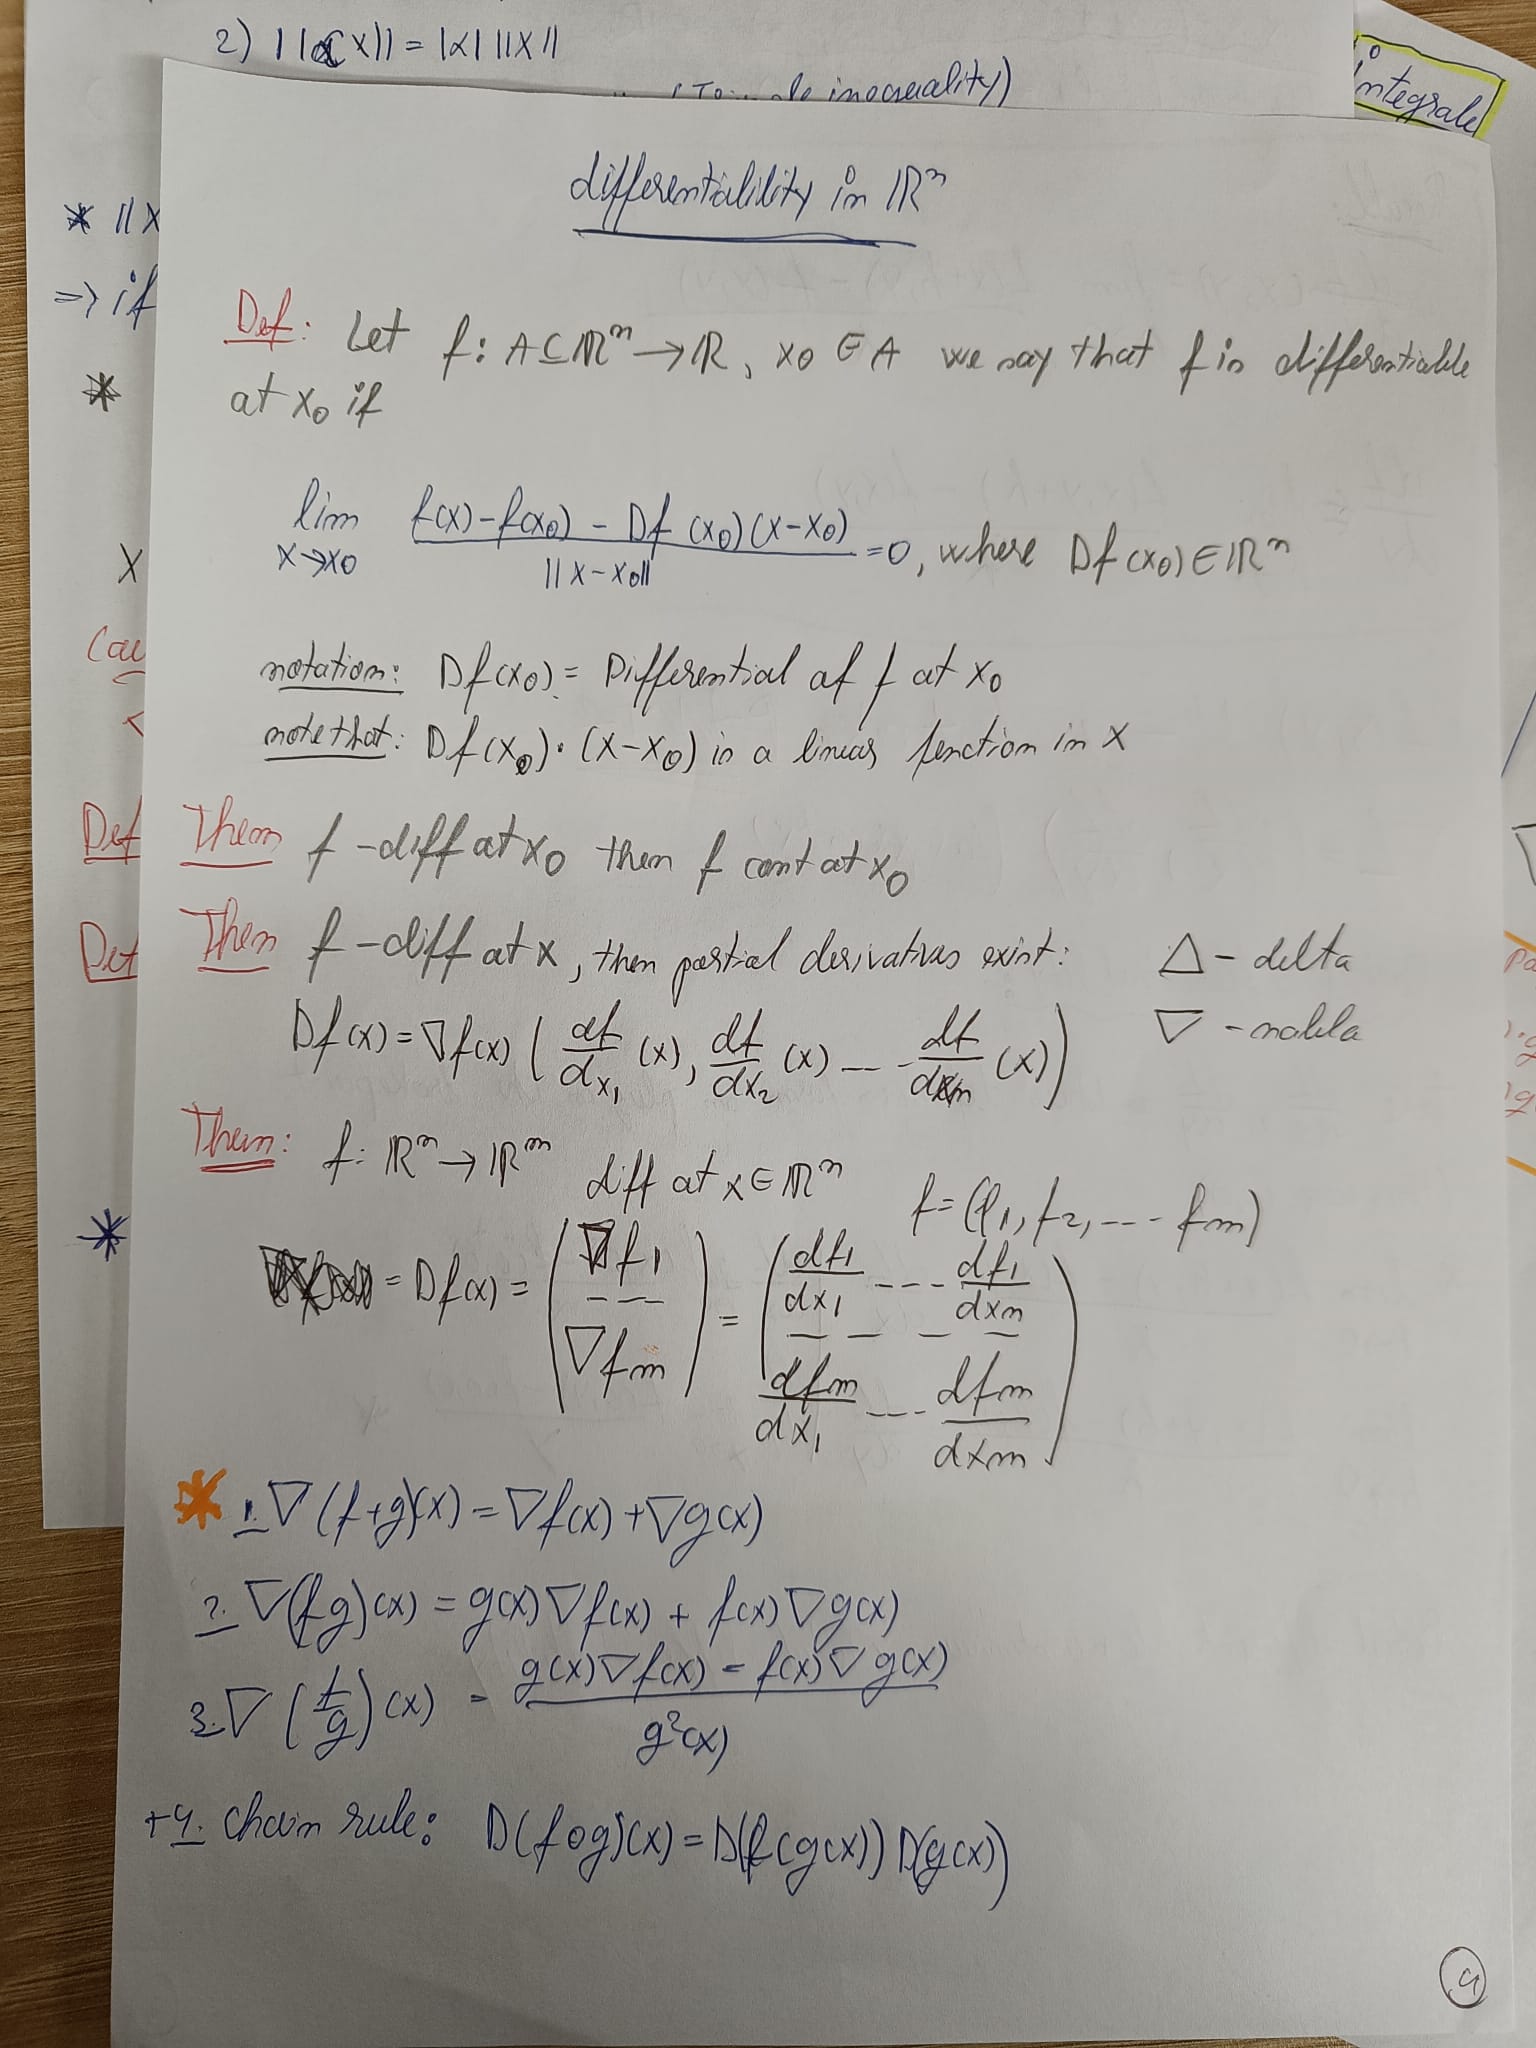 2) ||αx|| = |α| ||x||
inequality)
Integrale
* ||x
=> if
*
x
Cau
Def
Def
*
differentialility in ℝⁿ
Def: Let f: A⊆ℝⁿ→ℝ, x₀ ∈ A we say that f is differentiable
at x₀ if
lim x→x₀ (f(x)-f(x₀) - Df(x₀)(x-x₀)) / ||x-x₀|| = 0, where Df(x₀)∈ℝⁿ
notation: Df(x₀) = Differential of f at x₀
note that: Df(x₀)·(x-x₀) is a linear fenction in x
Them f -diff at x₀ then f cont at x₀
Them f -diff at x, then partial derivatives exist: △ - delta
Df(x) = ∇f(x) (df/dx₁ (x), df/dx₂ (x) --- df/dxn (x)) ▽ - nabla
Them: f: ℝⁿ → ℝᵐ diff at x∈ℝⁿ f=(f₁, f₂, --- fm)
= Df(x) = (∇f₁ --- ∇fm) = (df₁/dx₁ ---- df₁/dxn ---- dfm/dx₁ ---- dfm/dxn)
* 1. ∇(f+g)(x) = ∇f(x) + ∇g(x)
2. ∇(fg)(x) = g(x)∇f(x) + f(x)∇g(x)
3. ∇(f/g)(x) = (g(x)∇f(x) - f(x)∇g(x)) / g²(x)
+4. chain rule: D(f∘g)(x) = D(f(g(x)) D(g(x))